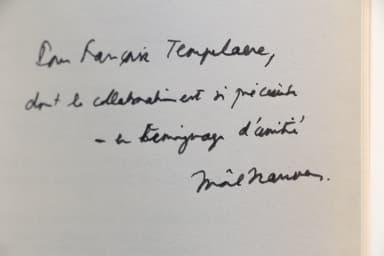 Pour Françoise Templaere,
dont la collaboration est si précieuse
- en témoignage d'amitié